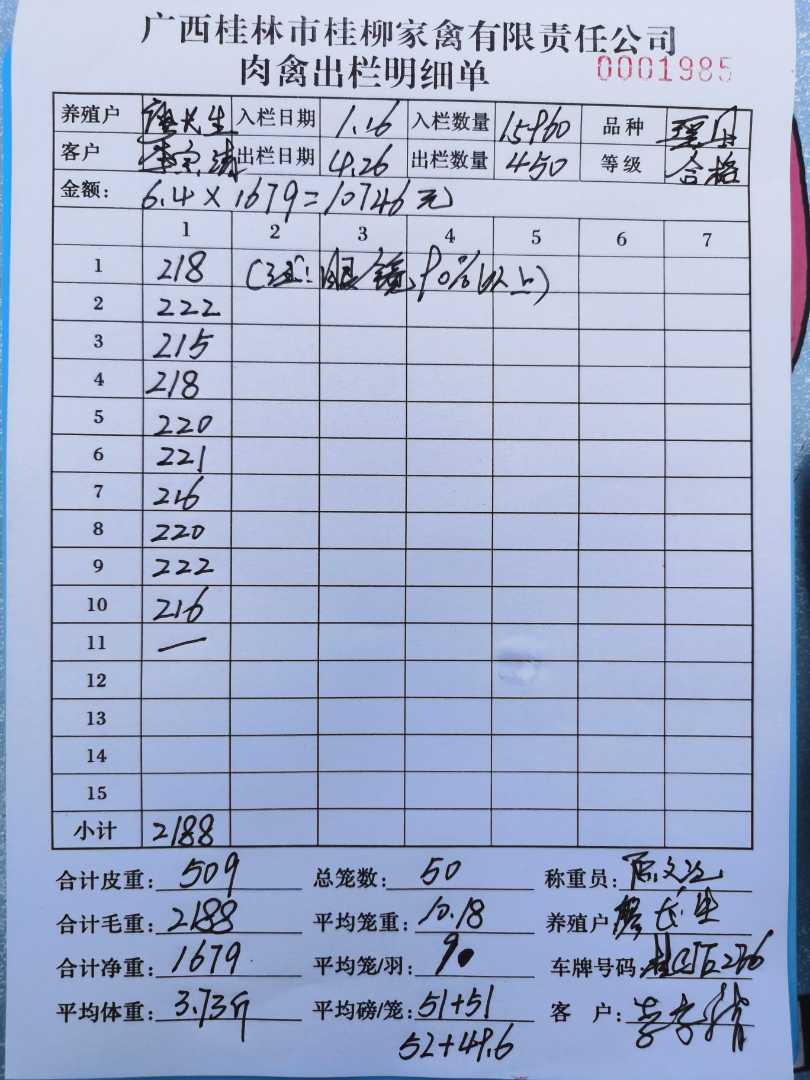 广西桂林市桂柳家禽有限责任公司
肉禽出栏明细单 0001985
养殖户 入栏日期 1.16 入栏数量 15960 品种
客户 出栏日期 4.26 出栏数量 450 等级 合格
金额: 6.4×1679=10746元
1 2 3 4 5 6 7
1 218 (注:眼镜90%以上)
2 222
3 215
4 218
5 220
6 221
7 216
8 220
9 222
10 216
11 —
12
13
14
15
小计 2188
合计皮重: 509 总笼数: 50 称重员:
合计毛重: 2188 平均笼重: 10.18 养殖户
合计净重: 1679 平均笼/羽: 9 车牌号码:
平均体重: 3.73斤 平均磅/笼: 51+51 客户:
52+49.6